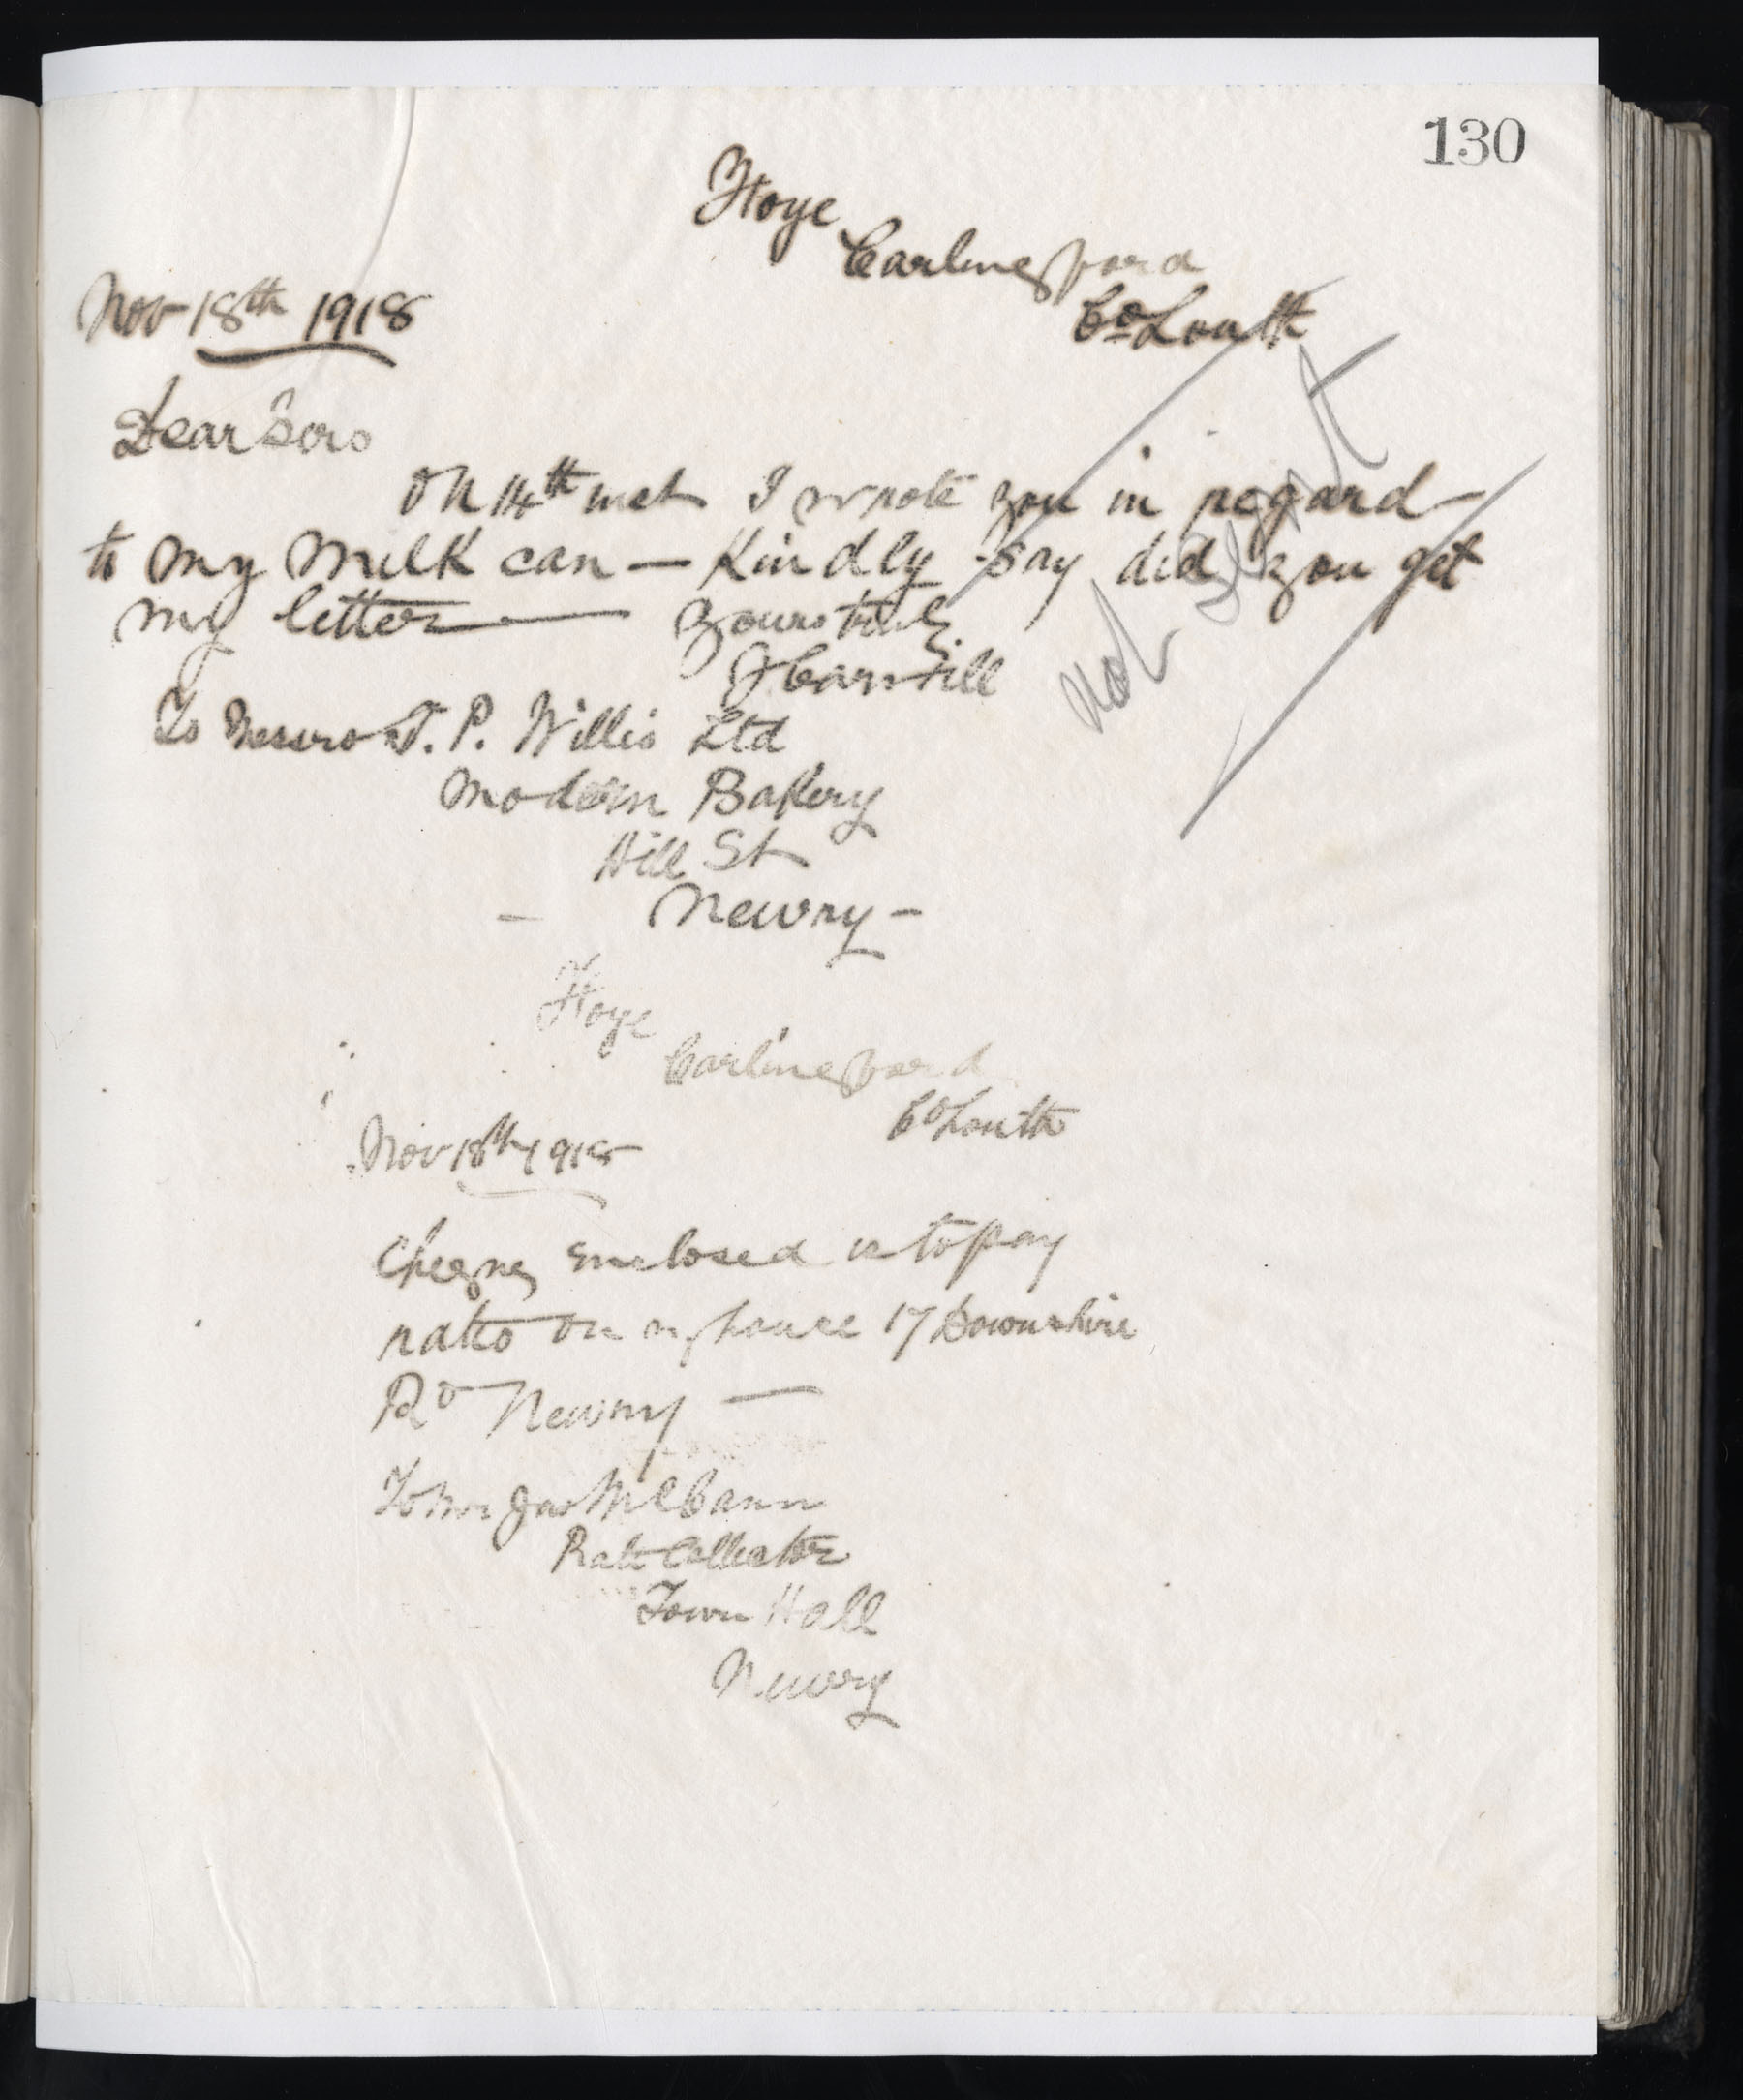 130
Hoye
Carlingford
Co Louth
Nov 18th 1918
Dear Sirs
On 14th inst I wrote you in regard
to my milk can — Kindly say did you get
my letter — yours truly
not sent
To Messrs T. P. Willis Ltd
Modern Bakery
Hill St
— Newry —
Hoye
Carlingford
Co Louth
Nov 18th 1918
Cheque enclosed is to pay
rates on my house 17 Downshire
Rd Newry —
To Mr Jas McCann
Rate Collector
Town Hall
Newry